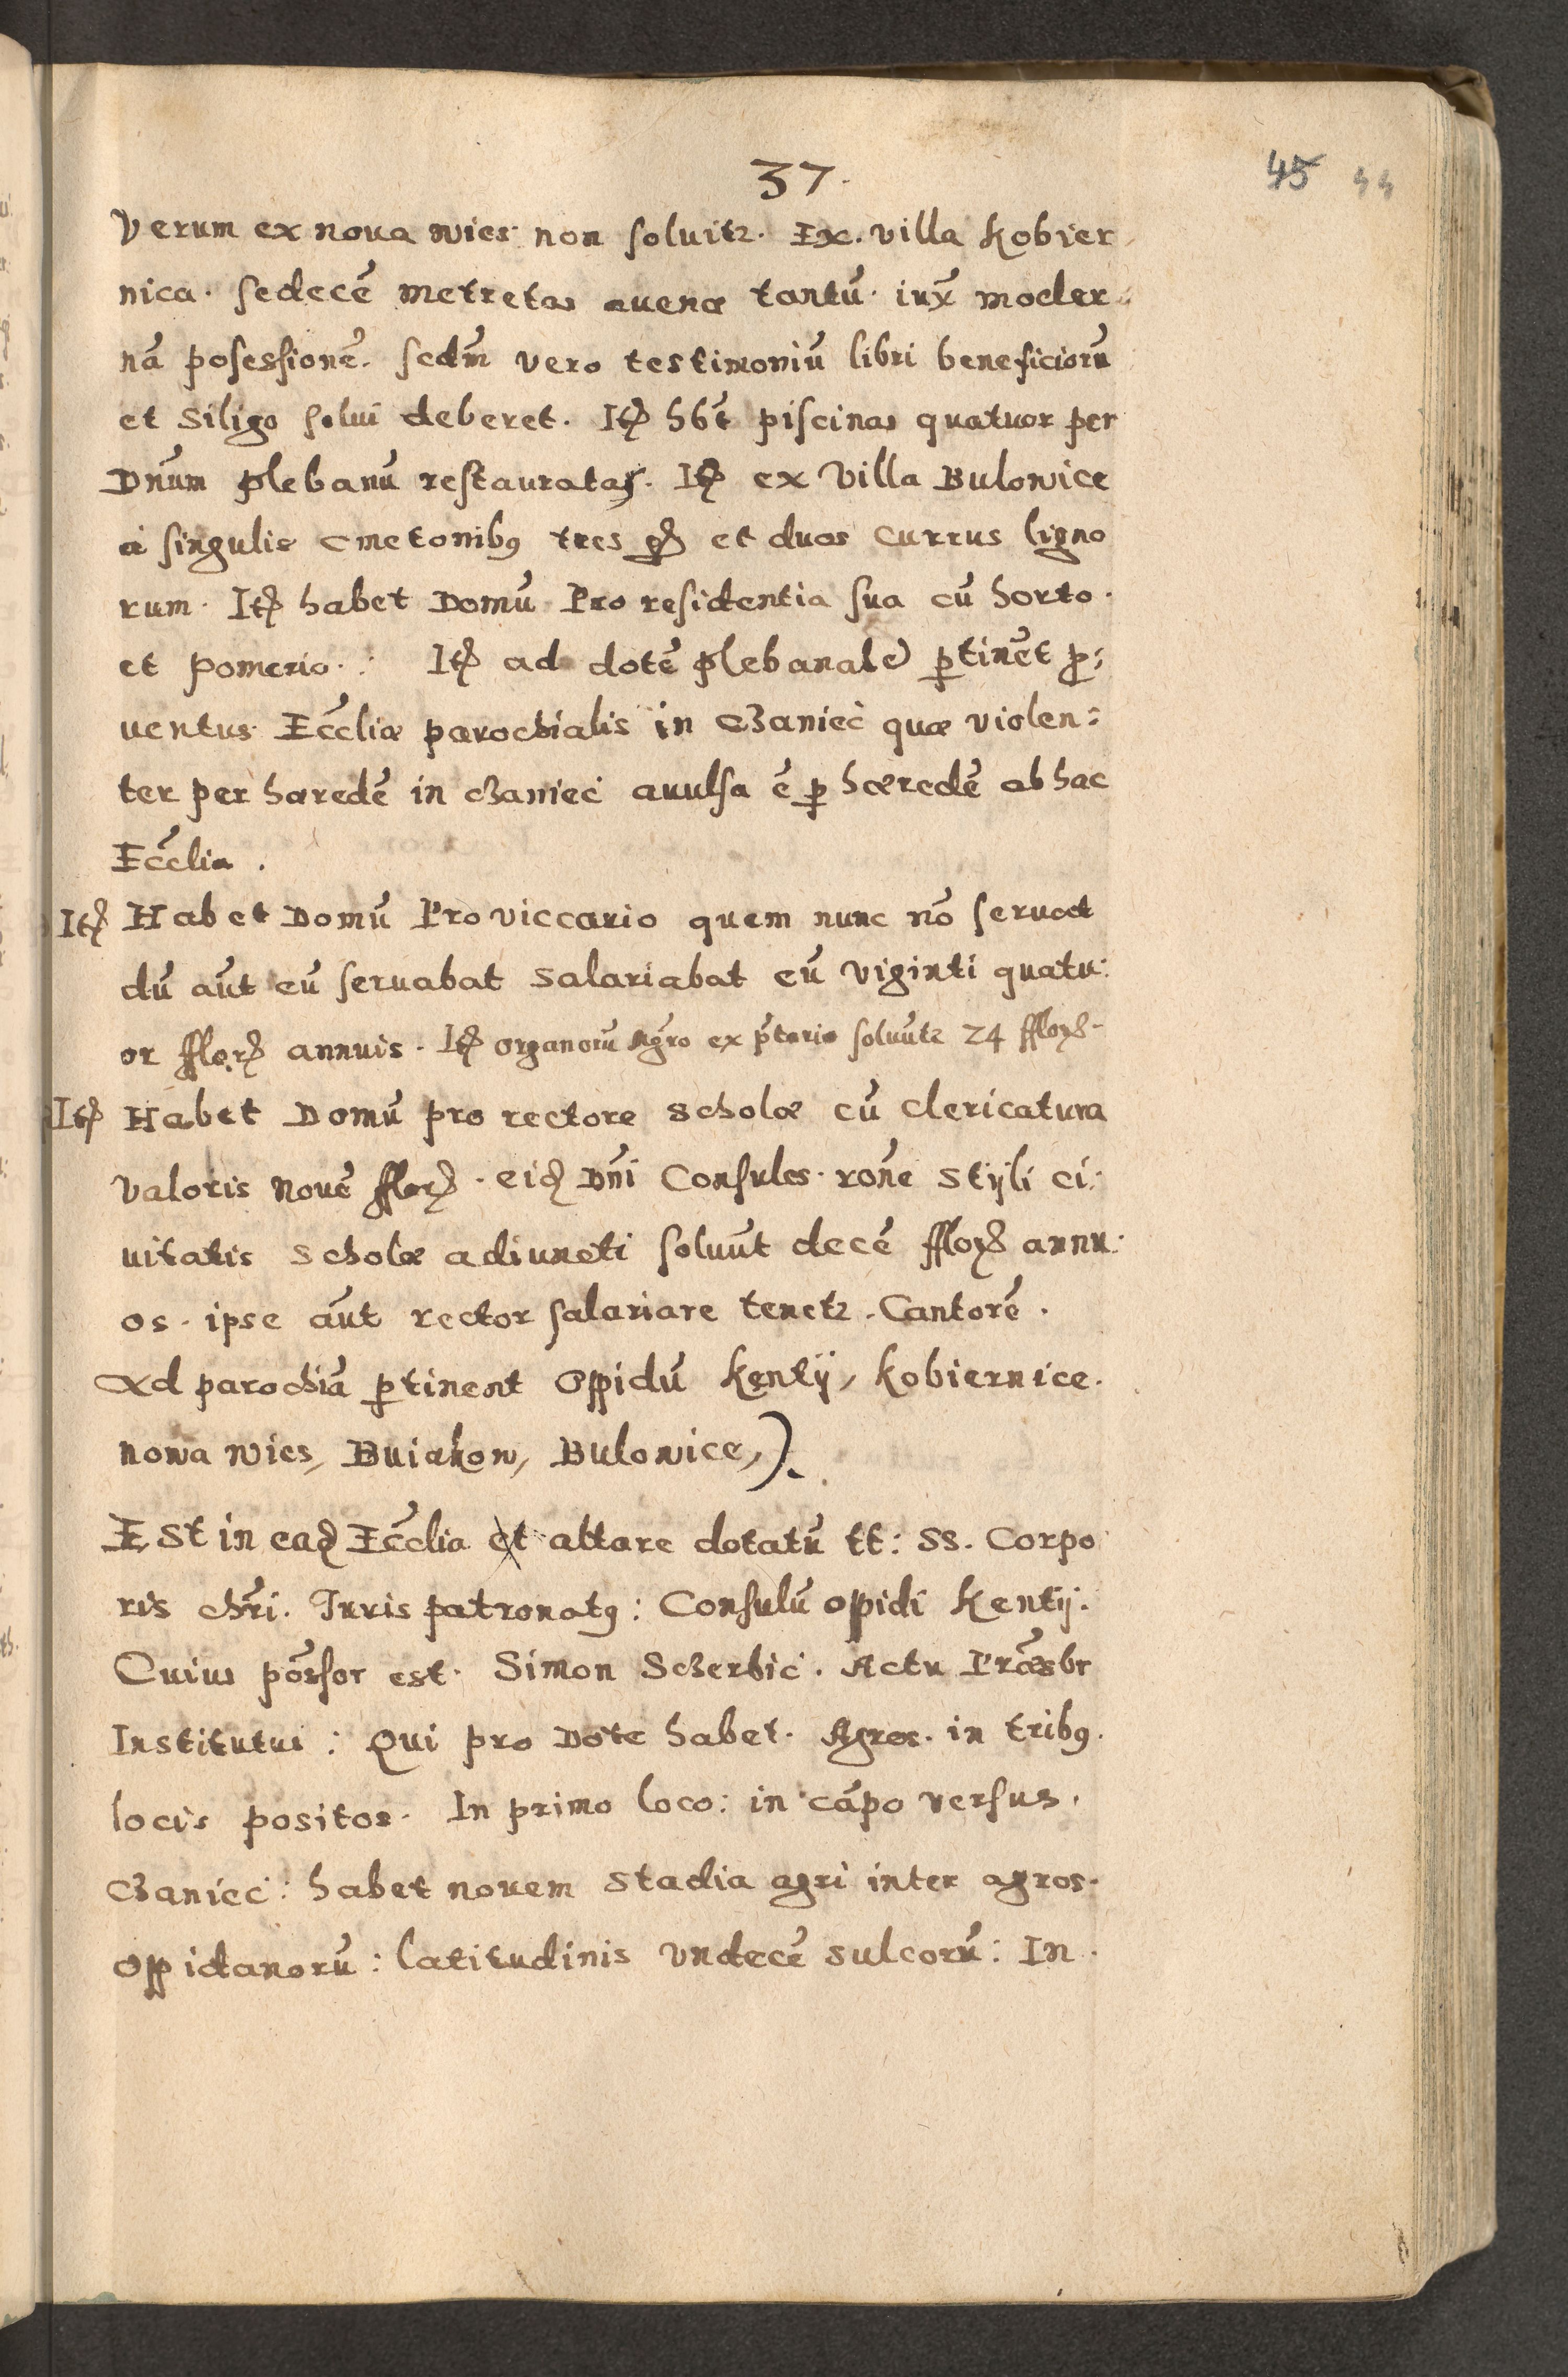 37.
45 44
Verum ex noua wies non soluitr. Ex. villa Kobier
nica. sedecē metretas auenæ tantū. iux̄ moder
nā posessionē. sedm̄ vero testimoniū libri beneficiorū
et siligo solui deberet. Itꝫ hb̄t piscinas quatuor per
Dn̄um plebanū restauratas. Itꝫ ex villa Bulowice
a singulis cmetonibꝰ tres gꝫ et duos currus ligno
rum. Itꝫ habet Domū Pro residentia sua cū horto.
et pomerio. : Itꝫ ad dotē plebanalē ꝑtinēt ꝓ:
uentus Ecc̄liæ parochialis in Czaniec quæ violen:
ter per hæredē in Czaniec auulsa ē ꝑ hæredē ab hac
Ecc̄lia.
Itꝫ Habet Domū Pro viccario quem nunc nō seruat
dū aūt eū seruabat salariabat eū viginti quatu:
or fflorꝫ annuis. Itꝫ organorū Mgr̄o ex p̄torio soluūtr 24 fflorꝫ.
Itꝫ Habet Domū pro rectore scholæ cū clericatura
valoris nouē fflorꝫ. eidꝫ Dn̄i Consules. rōne styli ci:
uitatis scholæ adiuncti soluūt decē fflorꝫ annu:
os. ipse aūt rector salariare tenetr. Cantorē.
Ad parochiā ꝑtinent oppidū Kentÿ, Kobiernice.
nowa wies, Buiakow, Bulowice,).
Est in eadꝫ Ecc̄lia et altare dotatū tt: SS. Corpo
ris chr̄i. Iuris patronatꝰ: Consulū oppidi Kentij.
Cuius pōssor est. Simon Sczerbic. Actu Præsbr
Institutus: Qui pro Dote habet. Agros. in tribꝰ.
locis positos. In primo loco: in cāpo versus.
Czaniec: habet nouem stadia agri inter agros.
oppidanorū: latitudinis vndecē sulcorū: In.